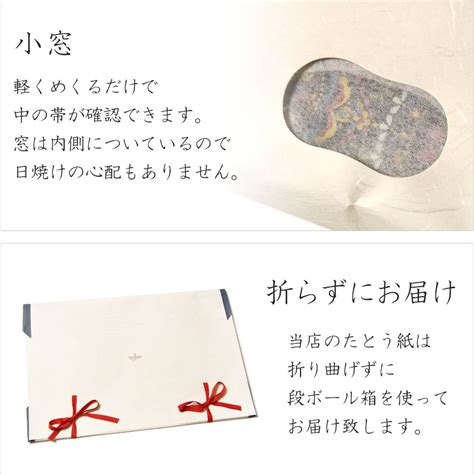 小窓
軽くめくるだけで
中の帯が確認できます。
窓は内側についているので
日焼けの心配もありません。
折らずにお届け
当店のたとう紙は
折り曲げずに
段ボール箱を使って
お届け致します。